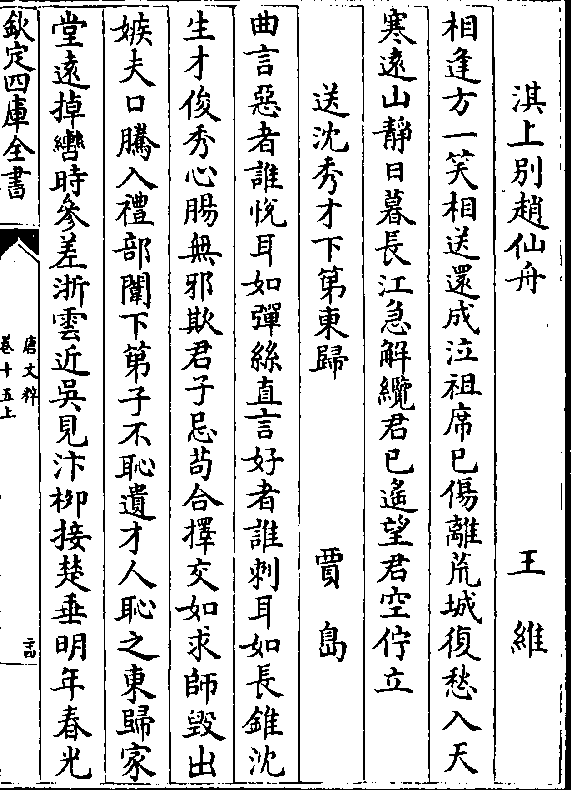 淇上別趙仙舟　王維
相逢方一笑相送還成泣祖席已傷離荒城復愁入天
寒遠山靜日暮長江急解纜君已遙望君空佇立
送沈秀才下第東歸　賈島
曲言惡者誰悅耳如彈絲直言好者誰刺耳如長錐沈
生才俊秀心腸無邪欺君子忌茍合擇交如求師毀出
嫉夫口騰入禮部闈下第子不恥遺才人恥之東歸家
堂遠掉轡時參差浙雲近吳見汴栁接楚垂明年春光
欽定四庫全書
唐文粹
卷十五上